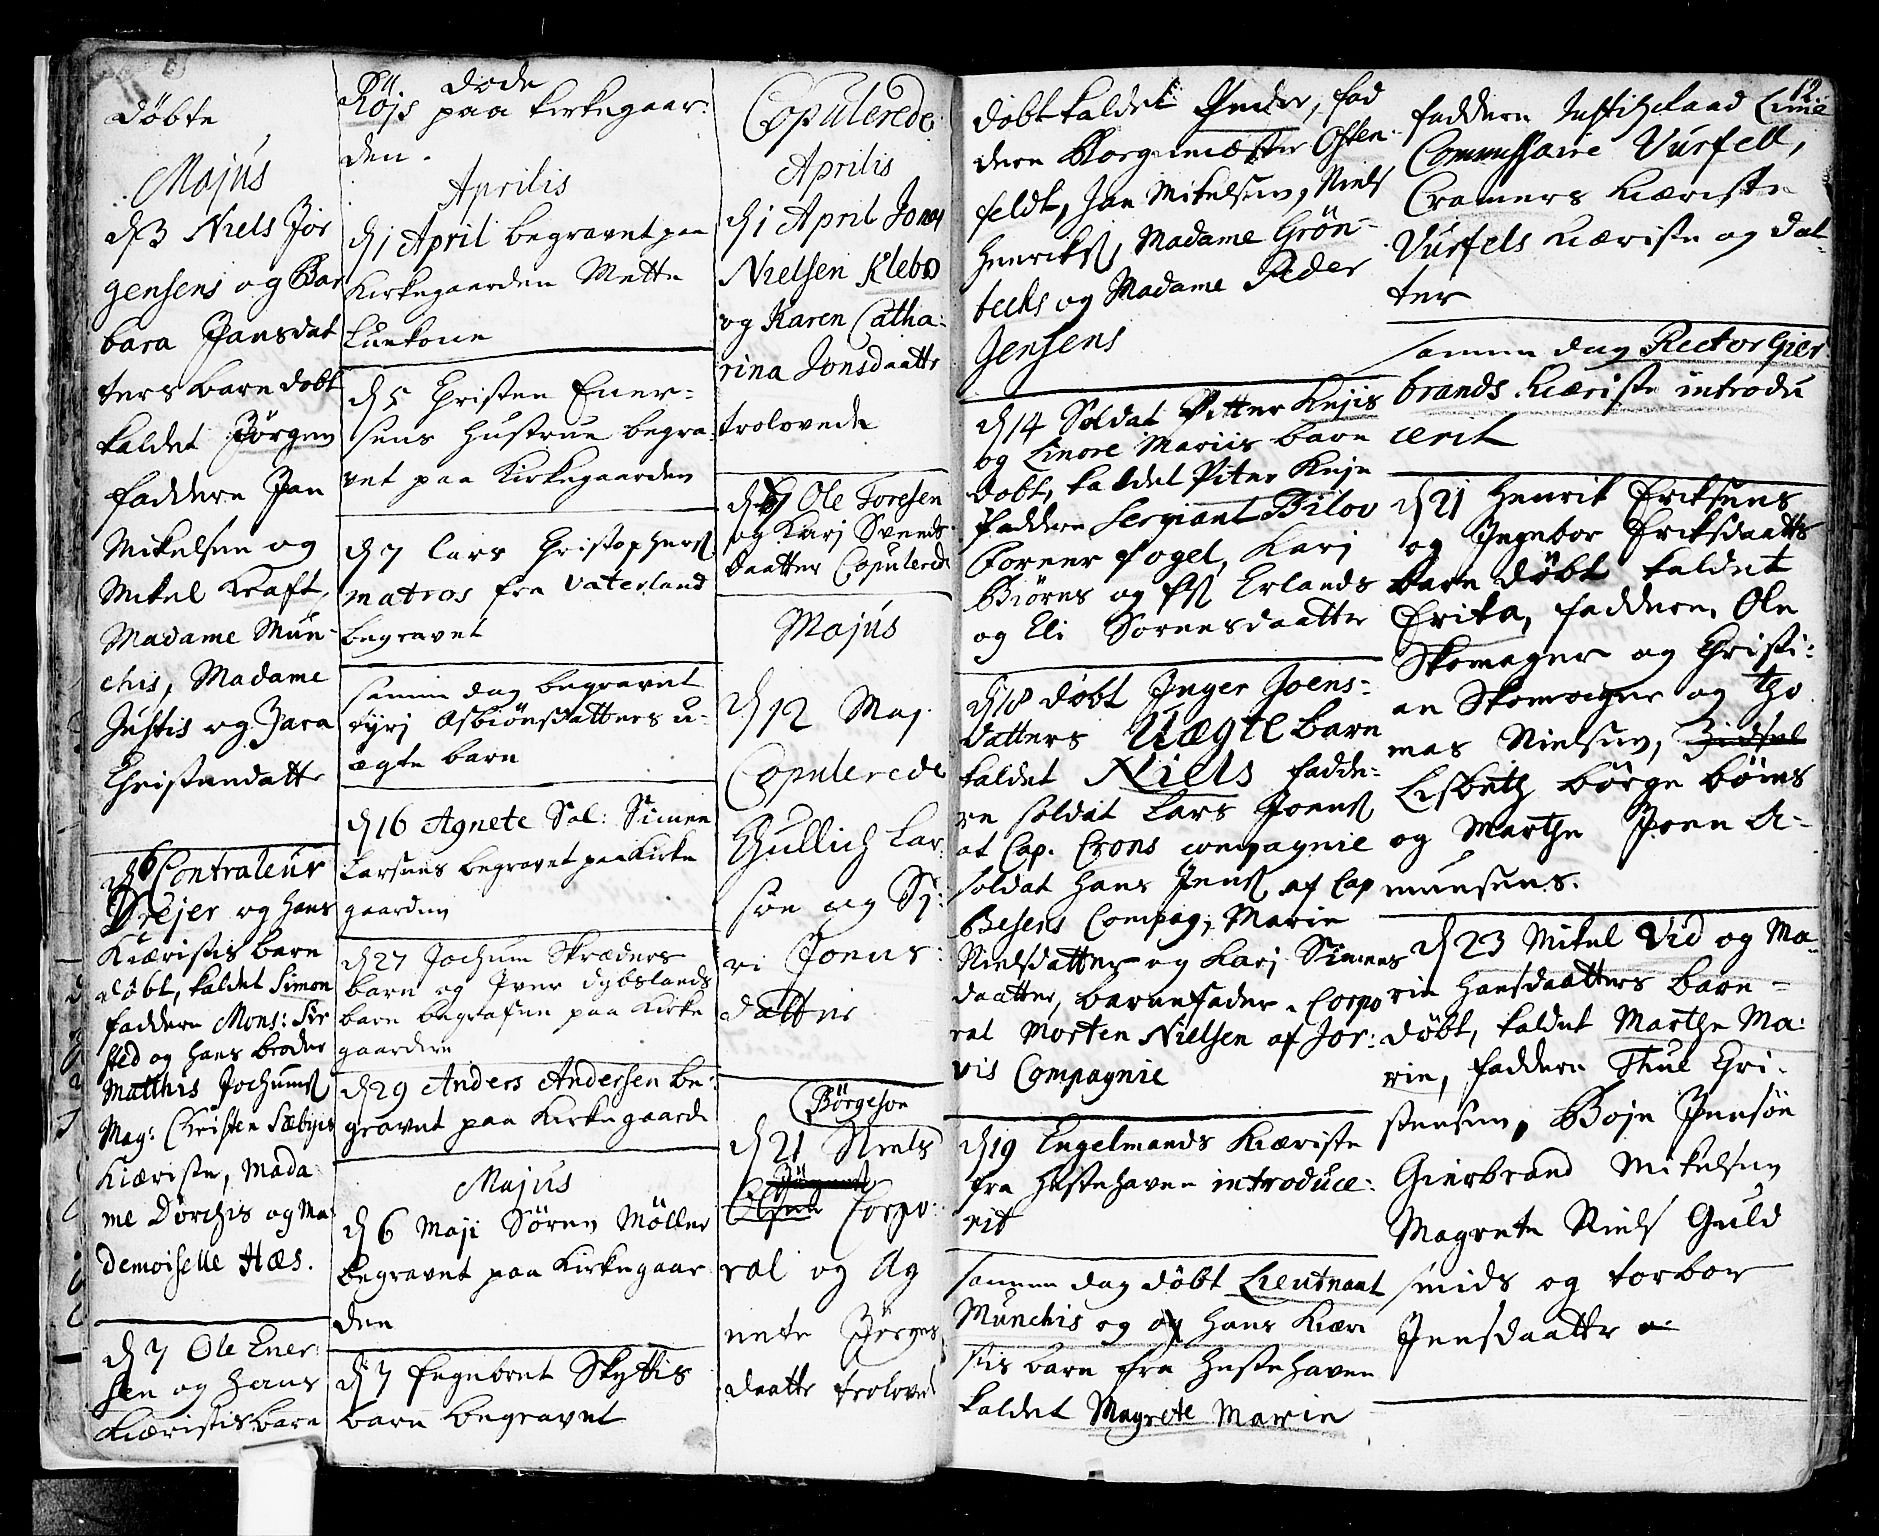 Döbte
Majus
d 3 Niels Jör
gensens og Bar
bara Jansdat
ters barn döbt
kaldet Jörgen
faddere Jan
Mikelsen og
Mikel Kraft,
Madame Mun-
chis, Madame
Justis og Zara
Christendatter
d 6 Contraleur
Drejer og hans
Kiæristis barn
döbt, kaldet Simon
faddere Mons: Sir
sted og hans broder
Matthis Jochums
Mag: Christen Sæbyis
Kiæriste, Mada
me Dorchis og Ma
demoiselle Hæs.
d 7 Ole Ener
sen og hans
Kiæristis barn
Döde
Röjs paa Kirkegaar:
den.
Aprilis
d 1 April begravet paa
Kirkegaarden Mette
Luekone
d 5 Christen Ener-
sens Hustrue begra
vet paa Kirkegaarden
d 7 Lars Christophers
matros fra Vaterland
begravet
samme dag begravet
Syrj Asbiönsdatters u-
ægte barn
d 16 Agnete Sal: Simen
Larsens begravet paa Kirke
gaarden
d 27 Jochum Skræders
barn og Iver dybslands
barn begrafven paa Kirke
gaarden
d 29 Anders Andersen be:
gravet paa Kirkegaarde
Majus
d 6 Maji Sören Möller
begravet paa Kirkegaar
den
d 7 Engebret Skyttis
barn begravet
Copulerede
Aprilis
d 1 April Jonas
Nielsen Klebo
og Karen Catha:
rina Jonsdaatter
trolovede
d Ole Toresen
og Karj Svends
daatter Copulerede
Majus
d 12 Maj
Copulerede
Gullich Lar
sön og Sj:
ri Jonus:
datter
Börgeson
d 21 Niels
Olsen Corpo:
ral og Ag
nete Jörgens
daatter trolovede
12
döbt kaldet Peder, fad
dere Borgemæster Osten-
feldt, Jan Mikelsen, Niels
Henriks, Madame Grön-
becks og Madame Peder
Jensens
d 14 Soldat Pitter Kejis
og Linore Mariis barn
döbt, kaldet Piter Keje
faddere Sergiant Bilov
Corner Fogel, Karj
Biörns og Erlands
og Eli Sorensdaatter
d 18 döbt Inger Joens-
datters Uægte barn
kaldet Niels fadde-
re soldat Lars Joens
at Cap. Crons compagnie
soldat Hans Jens af Cap
Besens Compag, Marie
Nielsdatter og Karj Simens
daatter, barnefader Corpo
ral Morten Nielsen af Jor:
vis Compagnie
d 19 Engelmands Kiæriste
fra Hestehaven introduce:
rit
samme dag döbt Lieutnant
Munchis og hans Kiæri
stis barn fra Hestehaven
kaldet Magrete Marie
faddere Justitzraad Cime
Commissaire Vurfelt,
Cramers Kiæriste
Vurfels Kiæriste og dat-
ter
samme dag Rector Gier
brands Kiæriste introdu
cerit
d 21 Henrik Eriksens
og Ingebor Eriksdaatters
barn döbt kaldet
Erika, faddere, Ole
Skomager og Christi:
an Skomager og Tho
mas Nielsen, Zidsel
Lisbeth börge böies
og Marthe Joen A-
munsens.
d 23 Mikel Vid og Ma
rie Hansdaatters barn
döbt, kaldet Marthe Ma:
rie, faddere Thue Chri-
stensen, Boje Jensön
Gierbrand Mikelsen
Magrete Niels Guld
smids og torbor
Jensdaatter